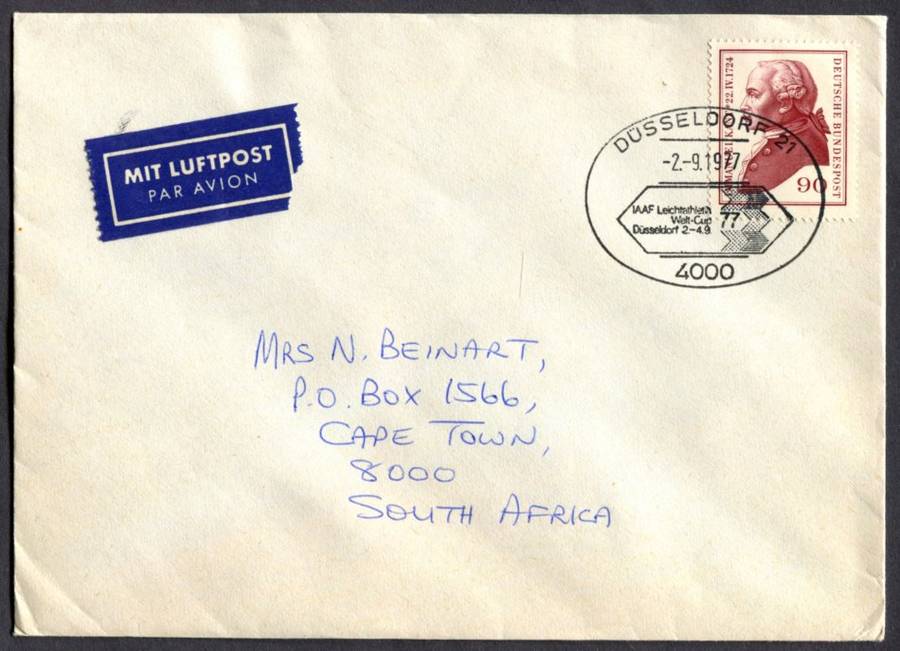 MIT LUFTPOST
PAR AVION
DEUTSCHE BUNDESPOST
*22.IV.1724
90
DÜSSELDORF 21
-2.-9.1977
IAAF Leichtathletik
Welt-Cup 77
Düsseldorf 2.-4.9.
4000
MRS N. BEINART,
P.O. BOX 1566,
CAPE TOWN,
8000
SOUTH AFRICA